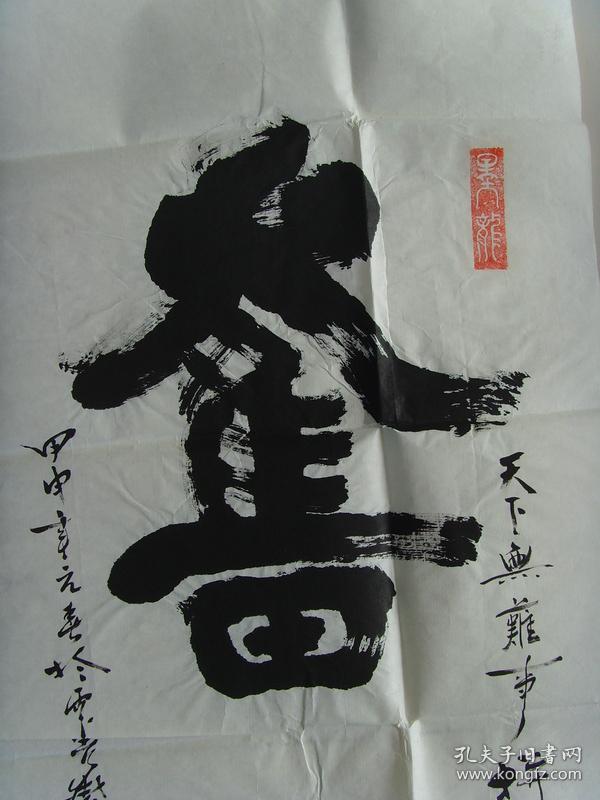 奮
天下無難事
甲申年元春於雲
孔夫子旧书网
www.kongfz.com